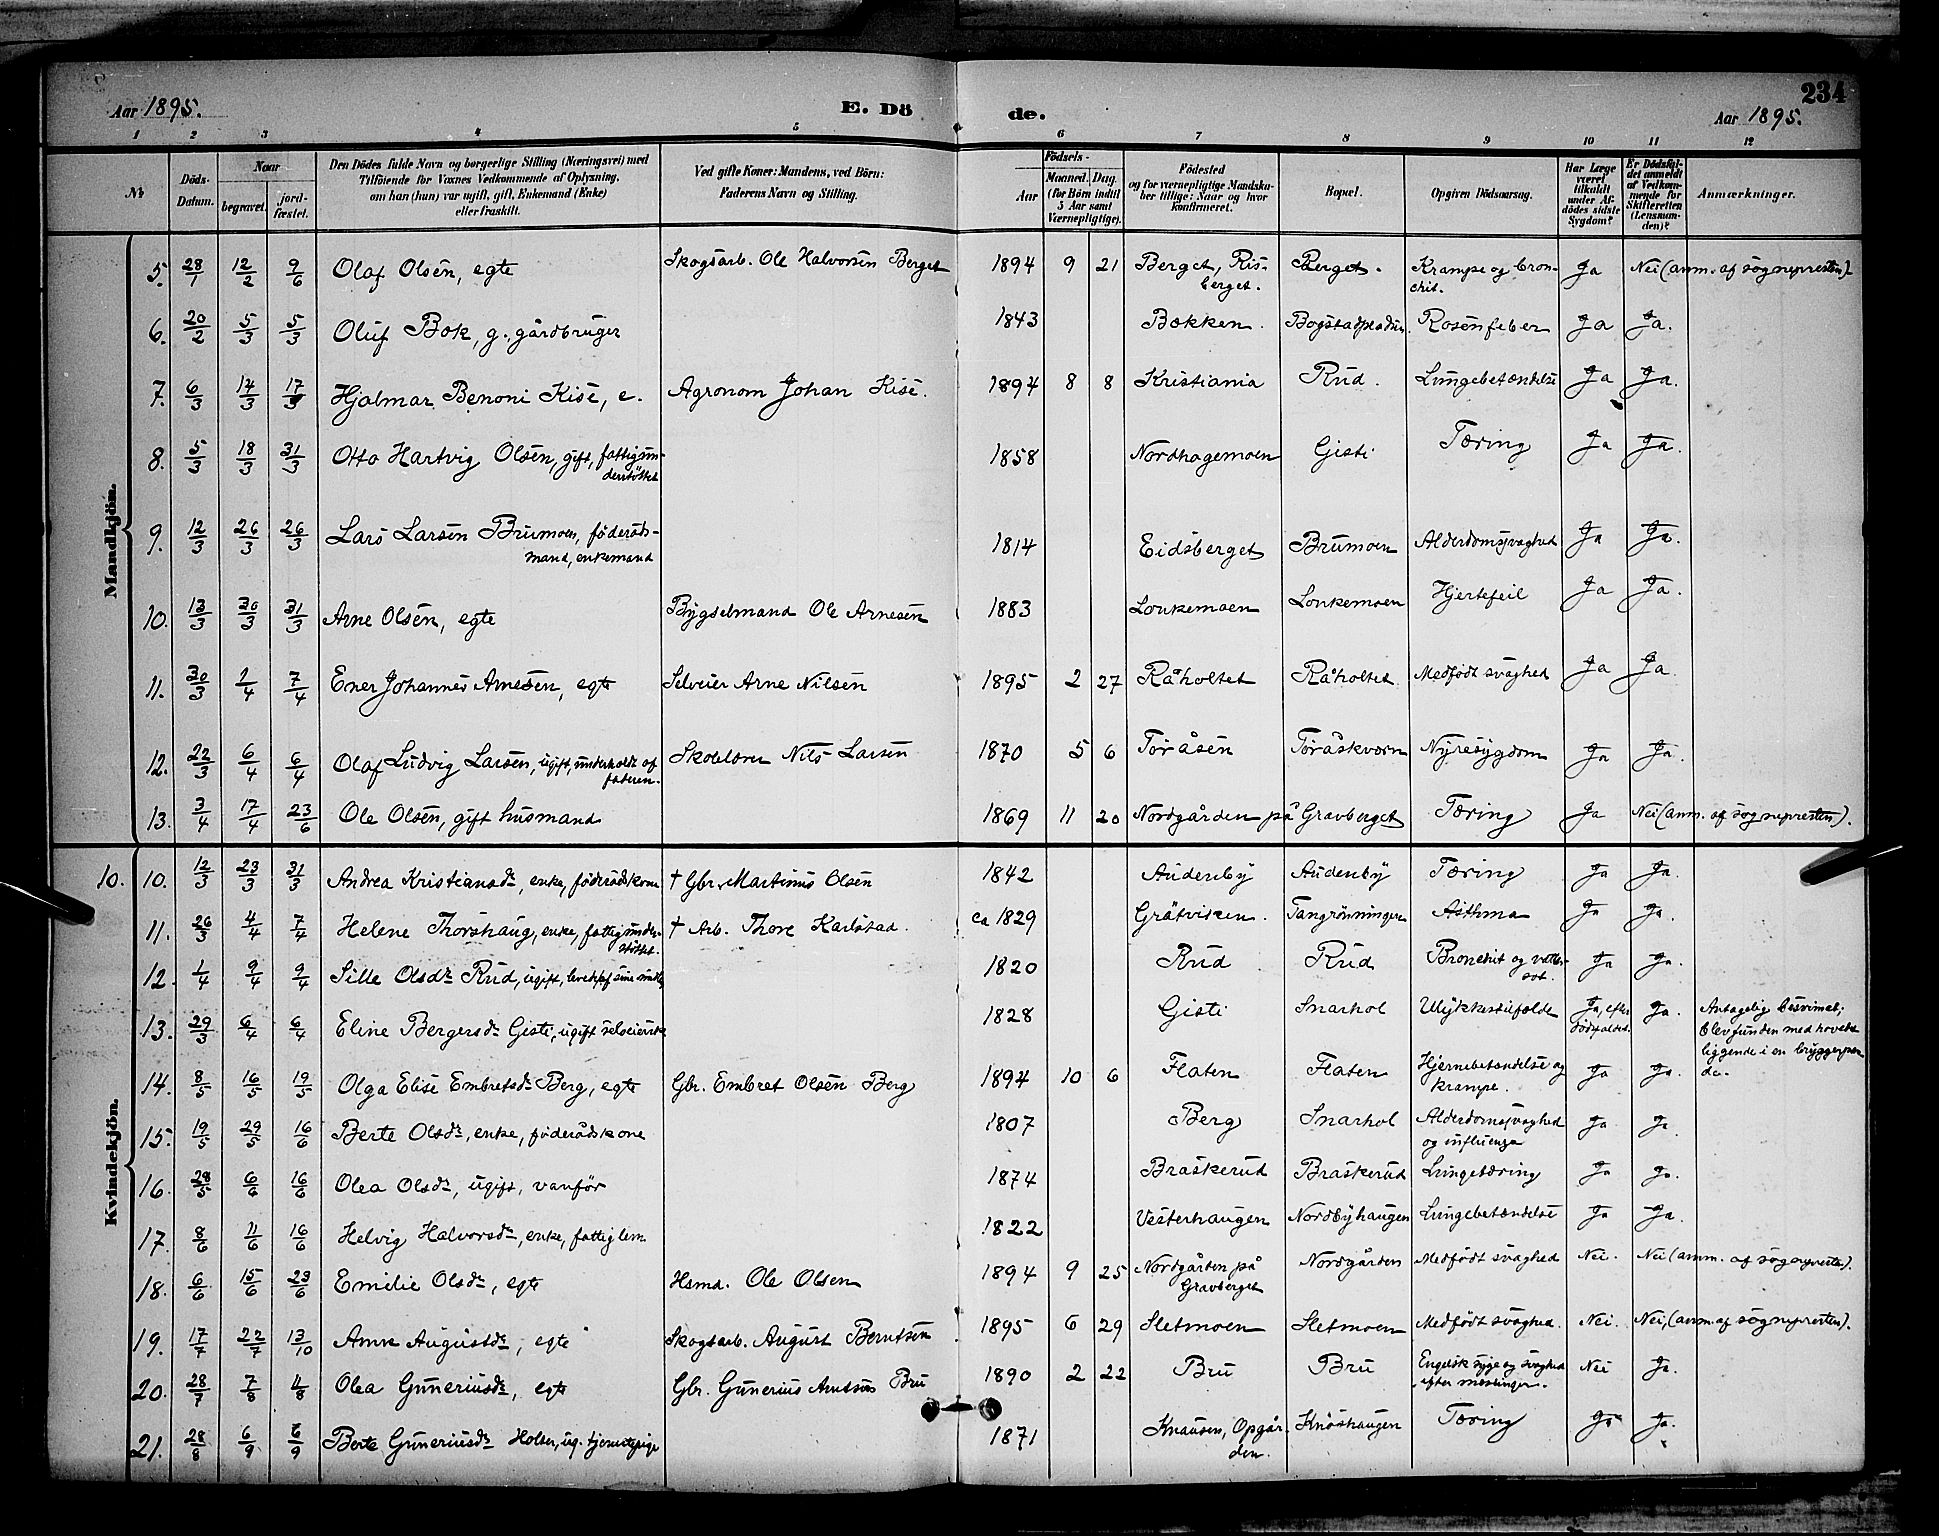 234
Aar 1895. E. Dö de. Aar 1895.
1 2 3 4 5 6 7 8 9 10 11 12
№ Döds-Datum. Naar begravet. jord-fæstet. Den Dödes fulde Navn og borgerlige Stilling (Næringsvei) med Tilföiende for Voxnes Vedkommende af Oplysning, om han (hun) var ugift, gift, Enkemand (Enke) eller fraskilt. Ved gifte Koner: Mandens, ved Börn: Faderens Navn og Stilling. Födsels- Aar Maaned. Dag. (for Börn indtil 5 Aar samt Værnepligtige). Födested og for værnepligtige Mandskaber tillige: Naar og hvor konfirmeret. Bopæl. Opgiven Dödsaarsag. Har Læge været tilkaldt under Afdödes sidste Sygdom? Er Dödsfaldet anmeldt af Vedkommende for Skifteretten (Lensmanden)? Anmærkninger.
Mandkjön.
5. 28/1 12/2 9/6 Olaf Olsen, egte Skogsarb. Ole Halvorsen Berget 1894 9 21 Berget, Risberget. Berget. Krampe og bronchit. Ja Nei (anm. af sognepresten)
6. 20/2 5/3 5/3 Oluf Bok, g. gårdbruger 1843 Bækken. Bogstadpladsen. Rosenfeber Ja Ja.
7. 6/3 14/3 17/3 Hjalmar Benoni Kise, e. Agronom Johan Kise. 1894 8 8 Kristiania Rud. Lungebetændelse Ja Ja.
8. 5/3 18/3 31/3 Otto Hartvig Olsen, gift, fattigunderstöttet 1858 Nordhagemoen Gisti Tæring Ja Ja.
9. 12/3 26/3 26/3 Lars Larsen Brumoen, föderådsmand, enkemand 1814 Eidsberget Brumoen Alderdomssvaghed Ja Ja.
10. 13/3 30/3 31/3 Arne Olsen, egte Bygselmand Ole Arnesen 1883 Loukemoen Loukemoen Hjertefeil Ja Ja.
11. 30/3 2/4 7/4 Ener Johannes Arnesen, egte Selveier Arne Nilsen 1895 2 27 Råholtet Råholtet Medfödt svaghed Ja Ja.
12. 22/3 6/4 6/4 Olaf Ludvig Larsen, ugift, underholdt af faderen. Skolelærer Nils Larsen 1870 5 6 Toråsen Toråskværn Nyresygdom Ja Ja.
13. 3/4 17/4 23/6 Ole Olsen, gift husmand 1869 11 20 Nordgården på Gravberget Tæring Ja Nei (anm. af sognepresten).
Kvindekjön.
10. 10. 12/3 23/3 31/3 Andrea Kristiansdr., enke, föderådskone † Gbr. Martinus Olsen 1842 Audenby Audenby Tæring Ja Ja.
11. 26/3 4/4 7/4 Helene Thorshaug, enke, fattigunderstöttet. † Arb. Thore Karlstad. ca 1829 Gråtvisken. Tangrönningen Asthma Ja Ja.
12. 1/4 9/4 9/4 Sille Olsdr. Rud, ugift, levet af sine midler 1820 Rud Rud Bronchit og vattersot. Ja Ja.
13. 29/3 6/4 6/4 Eline Bergersdr. Gisti, ugift selveierske 1828 Gisti Snarhol Ulykkestilfælde Ja, efter dödsfaldet. Ja. Antagelig besvimet; blev funden med hovedet liggende i en bryggerpande.
14. 8/5 16/5 19/5 Olga Elise Embretsdr. Berg, egte Gbr. Embret Olsen Berg 1894 10 6 Flaten Flaten Hjernebetændelse og krampe. Ja Ja.
15. 19/5 29/5 16/6 Berte Olsdr., enke, föderådskone 1807 Berg Snarhol Alderdomssvaghed og influenza Ja Ja.
16. 28/5 6/6 16/6 Olea Olsdr., ugift, vanför 1874 Braskerud Braskerud Lungetæring Ja Ja.
17. 8/6 11/6 16/6 Helvig Halvorsdr., enke, fattiglem 1822 Vesterhaugen Nordbyhaugen Lungebetændelse Ja Ja.
18. 6/6 15/6 23/6 Emilie Olsdr., egte Hsmd. Ole Olsen 1894 9 25 Nordgården på Gravberget Nordgården Medfödt svaghed Nei. Nei (anm. af sognepresten).
19. 17/7 22/7 13/10 Anne Augustsdr., egte Skogsarb. August Berntsen 1895 6 29 Sletmoen Sletmoen Medfödt svaghed. Nei. Nei, (anm. af sognepresten).
20. 28/7 7/8 11/8 Olea Guneriusdr., egte Gbr. Gunerius Arntsen Bru 1890 2 22 Bru Bru Engelsk syge og svaghed efter mæslinger. Nei Ja.
21. 28/8 6/9 6/9 Berte Guneriusdr. Holter, ug. tjenestepige 1871 Knausen, Opgården. Knöshaugen Tæring Ja Ja.